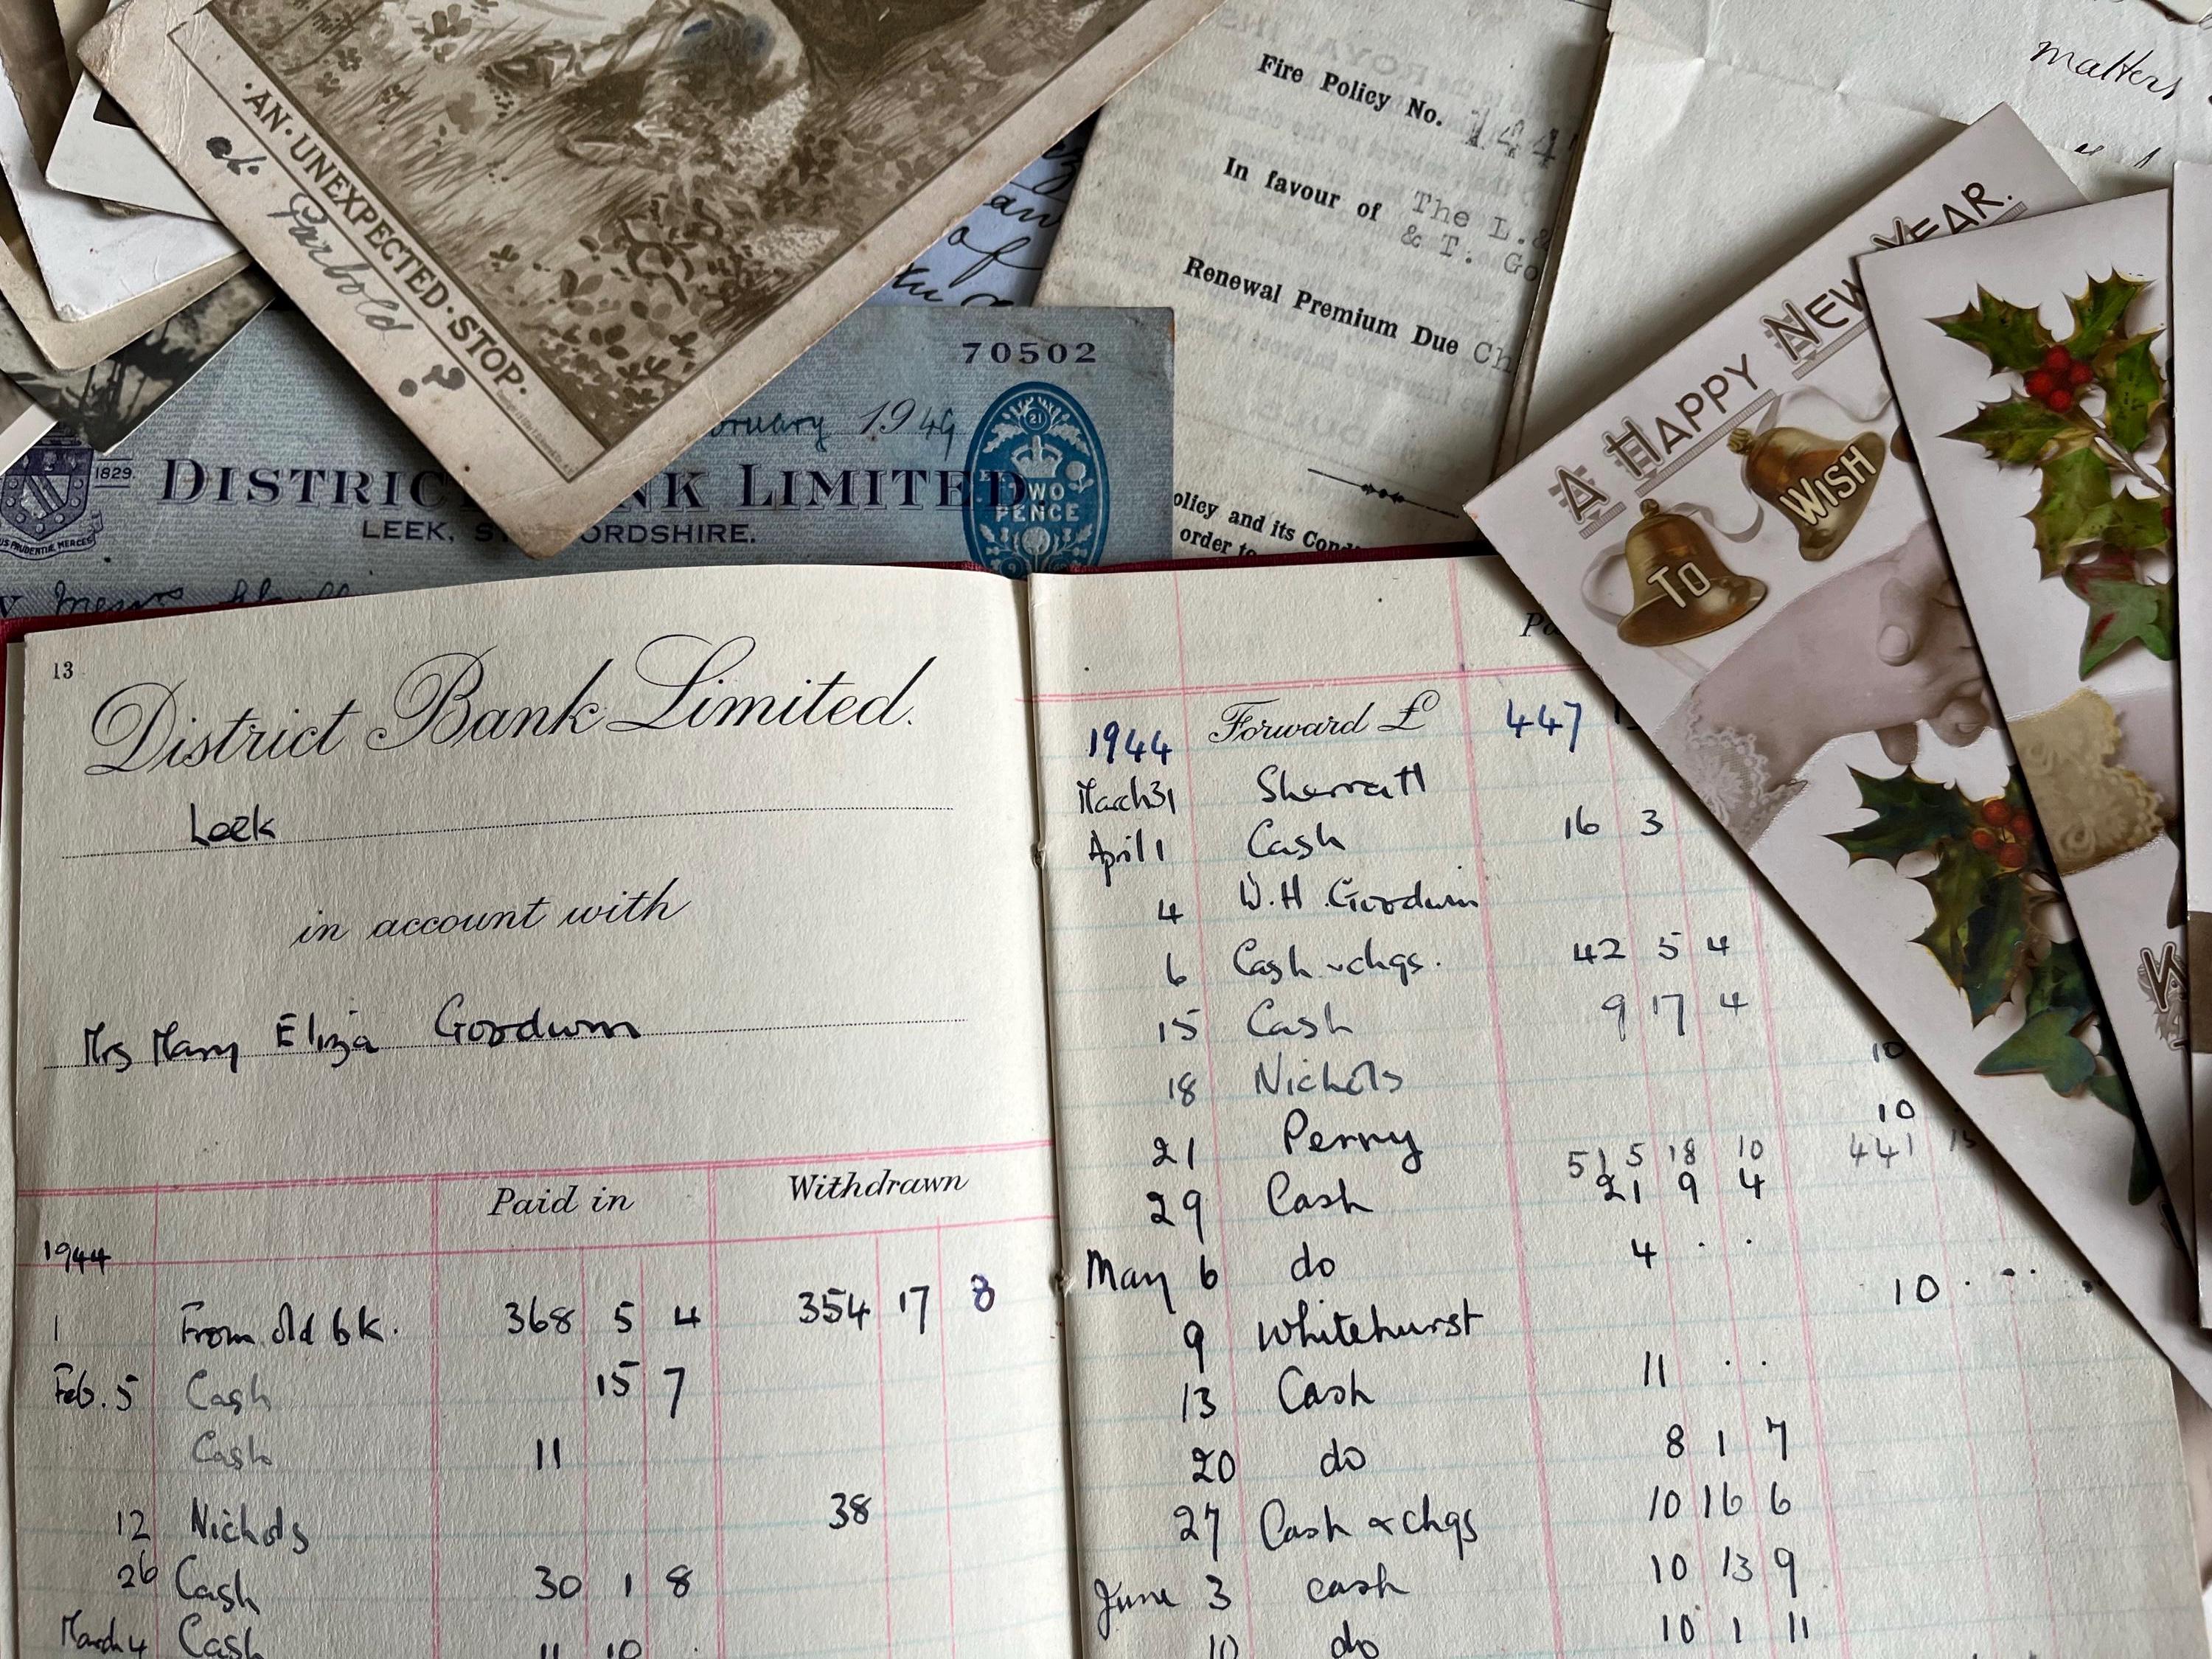 ·AN·UNEXPECTED·STOP·
at Parbold
?
Fire Policy No. 144
In favour of The L.&
& T. Go
Renewal Premium Due Ch
olicy and its Cond
order to
matters
A HAPPY NEW YEAR.
TO WISH
70502
ruary 1949
1829
DISTRIC NK LIMITED
TWO
PENCE
LEEK, ST FORDSHIRE.
13
District Bank Limited.
Leek
in account with
Mrs Mary Eliza Goodwin
Paid in Withdrawn
1944
1 From old bk. 368 5 4 354 17 8
Feb. 5 Cash 15 7
Cash 11
12 Nichols 38
26 Cash 30 1 8
March 4 Cash 11 10
1944 Forward £ 447
March 31 Sherratt
April 1 Cash 16 3
4 W.H. Goodwin
6 Cash & chgs. 42 5 4
15 Cash 9 17 4
18 Nichols 10
21 Perry 10
515 18 10 441 15
29 Cash 21 9 4
May 6 do 4 . .
9 Whitehurst 10 . .
13 Cash 11 . .
20 do 8 1 7
27 Cash & chgs 10 16 6
June 3 cash 10 13 9
10 do 10 1 11